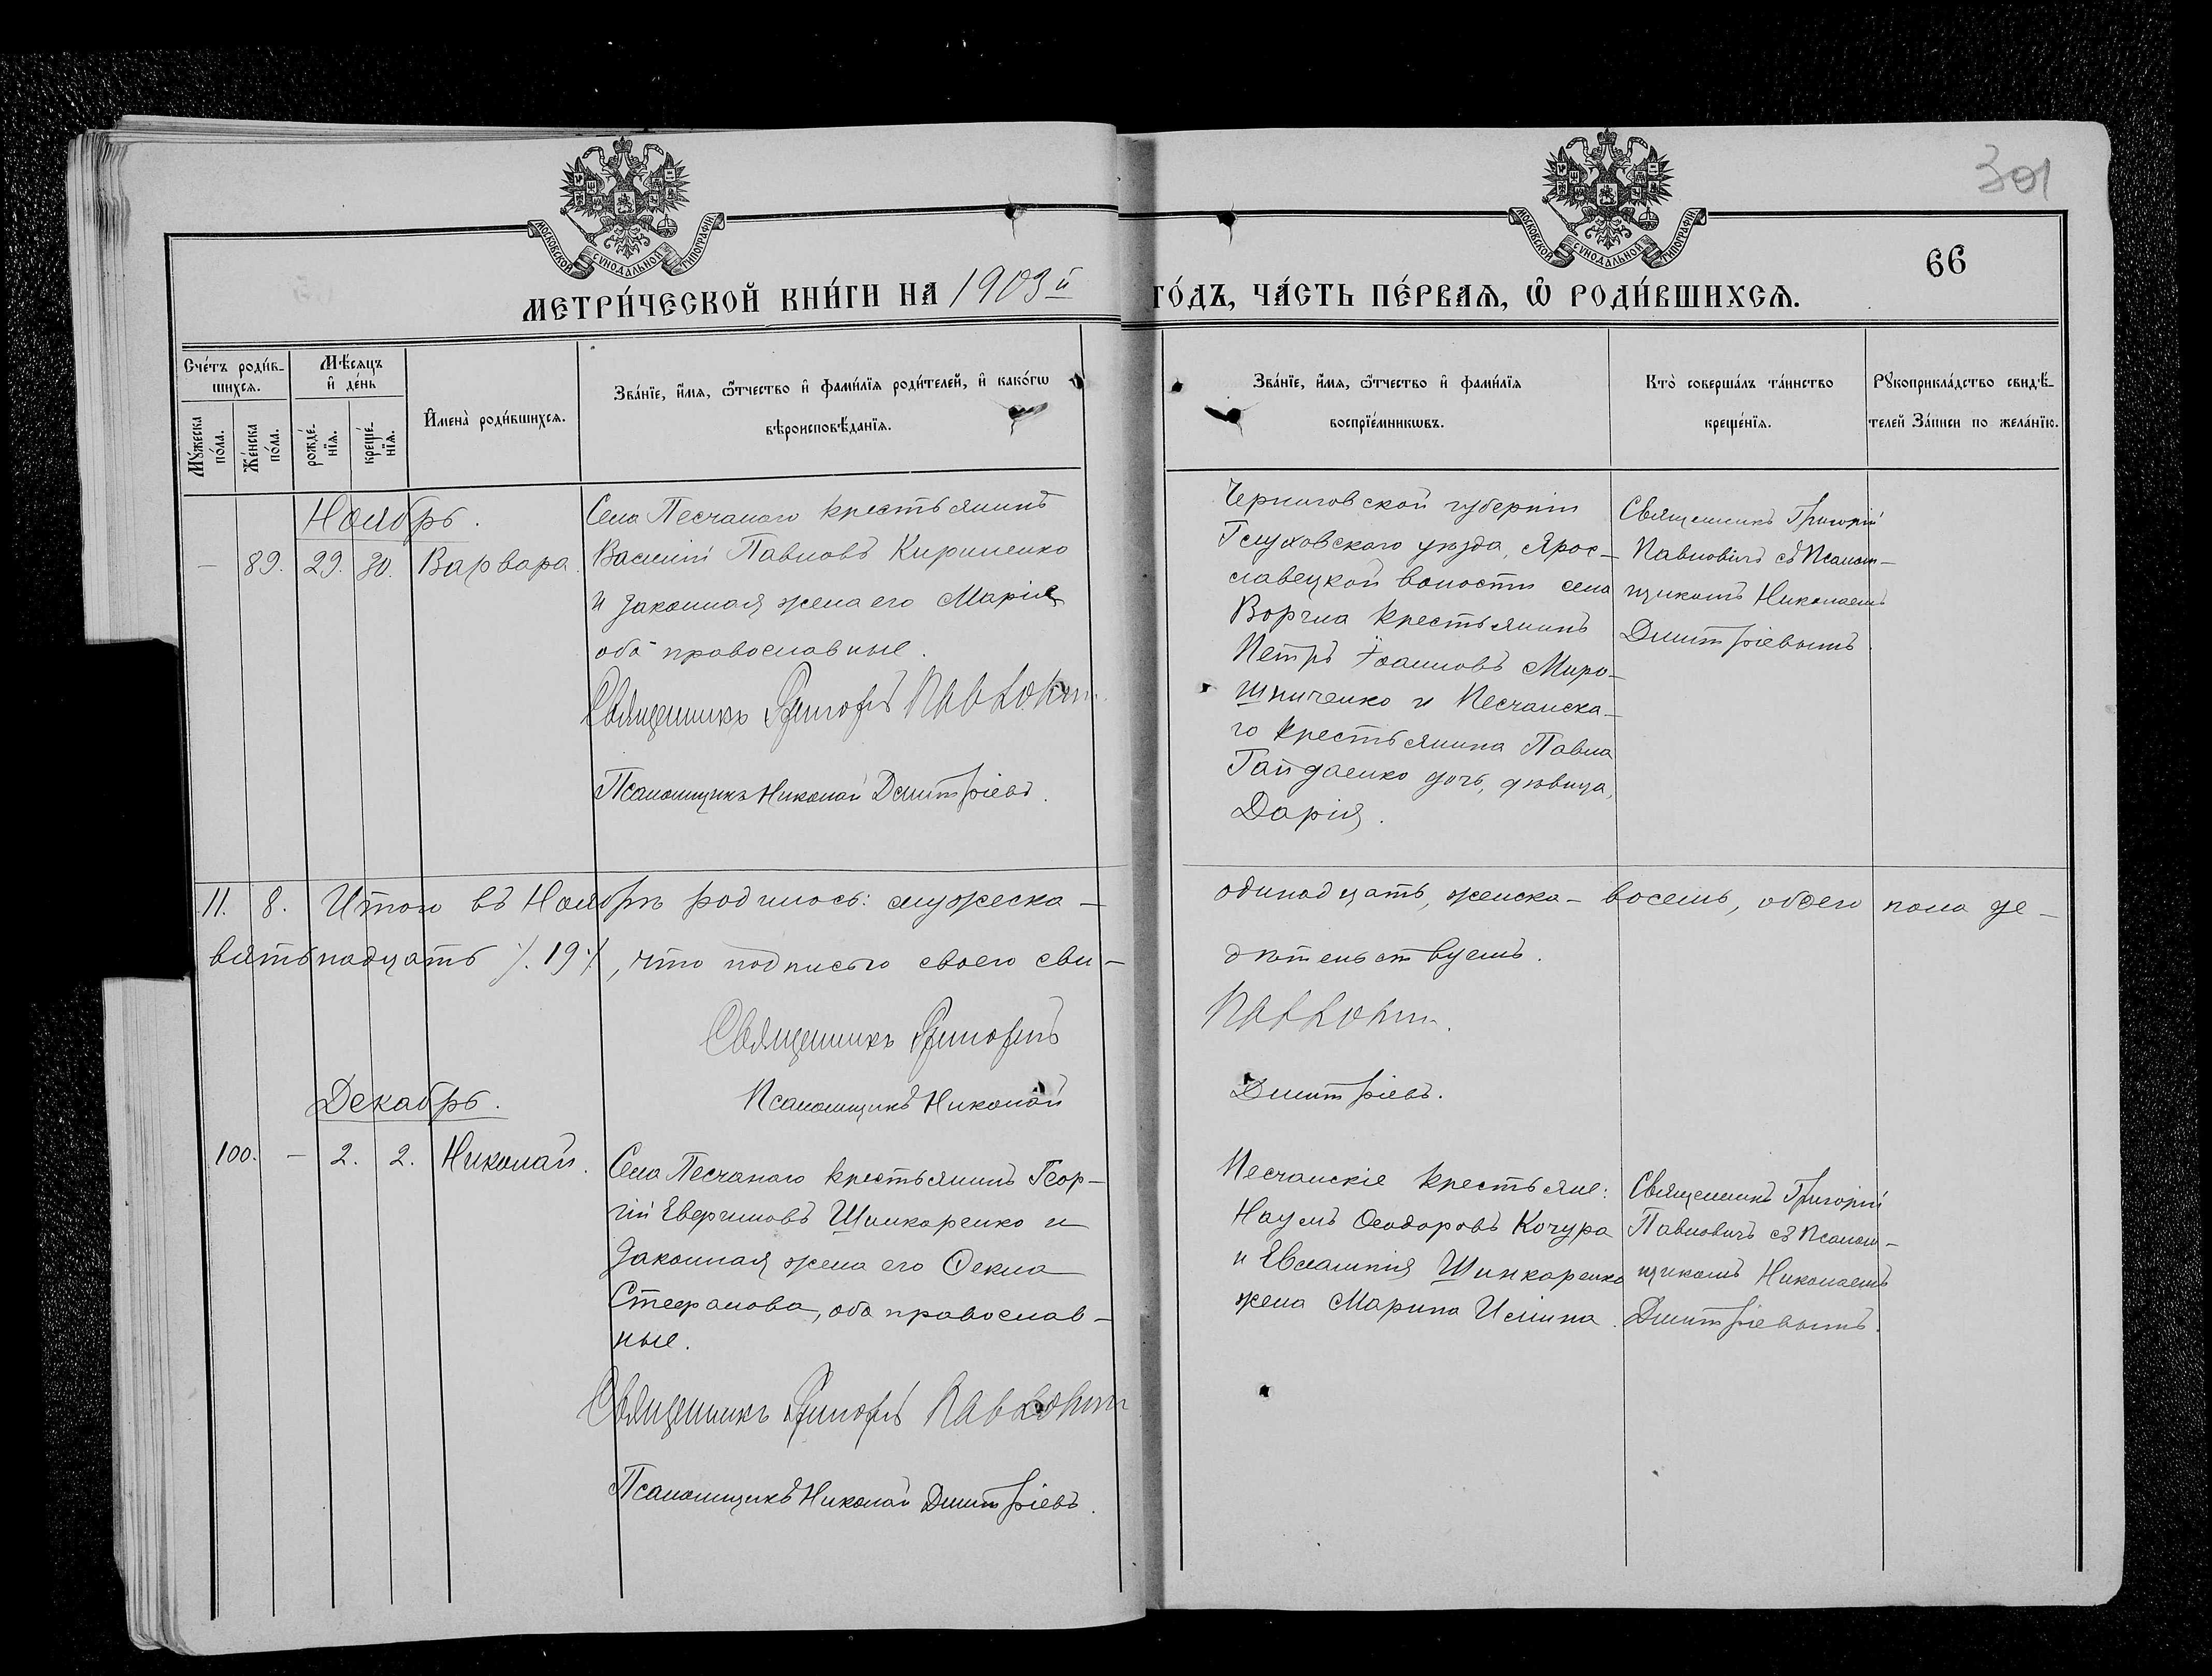 301
МОСКОВСКОЙ СѴНОДАЛЬНОЙ ТИПОГРАФІИ
МОСКОВСКОЙ СѴНОДАЛЬНОЙ ТИПОГРАФІИ
66
МЕТРИ́ЧЕСКОЙ КНИ́ГИ НА 1903й
ГО́ДЪ, ЧА́СТЬ ПЕ́РВАѦ, Ѡ҆ РОДИ́ВШИХСѦ.
Сче́тъ роди́в-
шихсѧ.
Мꙋ́жеска по́ла.
Же́нска по́ла.
Мѣ́сѧцъ
и҆ де́нь
рожде́-
нїѧ.
креще́-
нїѧ.
И҆мена̀ роди́вшихсѧ.
Зва́нїе, и҆́мѧ, ѻ҆́тчество и҆ фами́лїѧ роди́телей, и҆ како́гѡ
вѣроисповѣ́данїѧ.
Зва́нїе, и҆́мѧ, ѻ҆́тчество и҆ фами́лїѧ
воспрїе́мникѡвъ.
Кто̀ соверша́лъ та́инство
креще́нїѧ.
Рꙋкоприкла́дство свидѣ́-
телей За́писи по жела́нїю.
Ноябрь.
— 89. 29. 30. Варвара.
Села Песчаного крестьянинъ
Василій Павловъ Кириленко
и законная жена его Марія
оба православные.
Священникъ Григорій Павловичъ
Псаломщикъ Николай Дмитріевъ.
Черниговской губерніи
Глуховского уѣзда, Ярос-
лавецкой волости села
Воргла крестьянинъ
Петръ Іоанновъ Миро-
шниченко и Песчанска-
го крестьянина Павла
Гайдаенко дочь, дѣвица,
Дарія.
Священникъ Григорій
Павловичъ съ Псалом-
щикомъ Николаемъ
Дмитріевымъ.
11. 8. Итого въ Ноябрѣ родилось: мужеска — одинадцать, женска — восемь, обоего пола де-
вятьнадцать /. 19 /., что подписью своею сви- дѣтельствуемъ.
Священникъ Григорій Павловичъ.
Псаломщикъ Николай Дмитріевъ.
Декабрь.
100. — 2. 2. Николай.
Села Песчаного крестьянинъ Геор-
гій Евфимовъ Шинкаренко и
законная жена его Ѳекла
Стефанова, оба православ-
ные.
Священникъ Григорій Павловичъ
Псаломщикъ Николай Дмитріевъ.
Песчанскіе крестьяне:
Наумъ Ѳеодоровъ Кочура
и Евлампія Шинкаренко
жена Марина Ильина.
Священникъ Григорій
Павловичъ съ Псалом-
щикомъ Николаемъ
Дмитріевымъ.